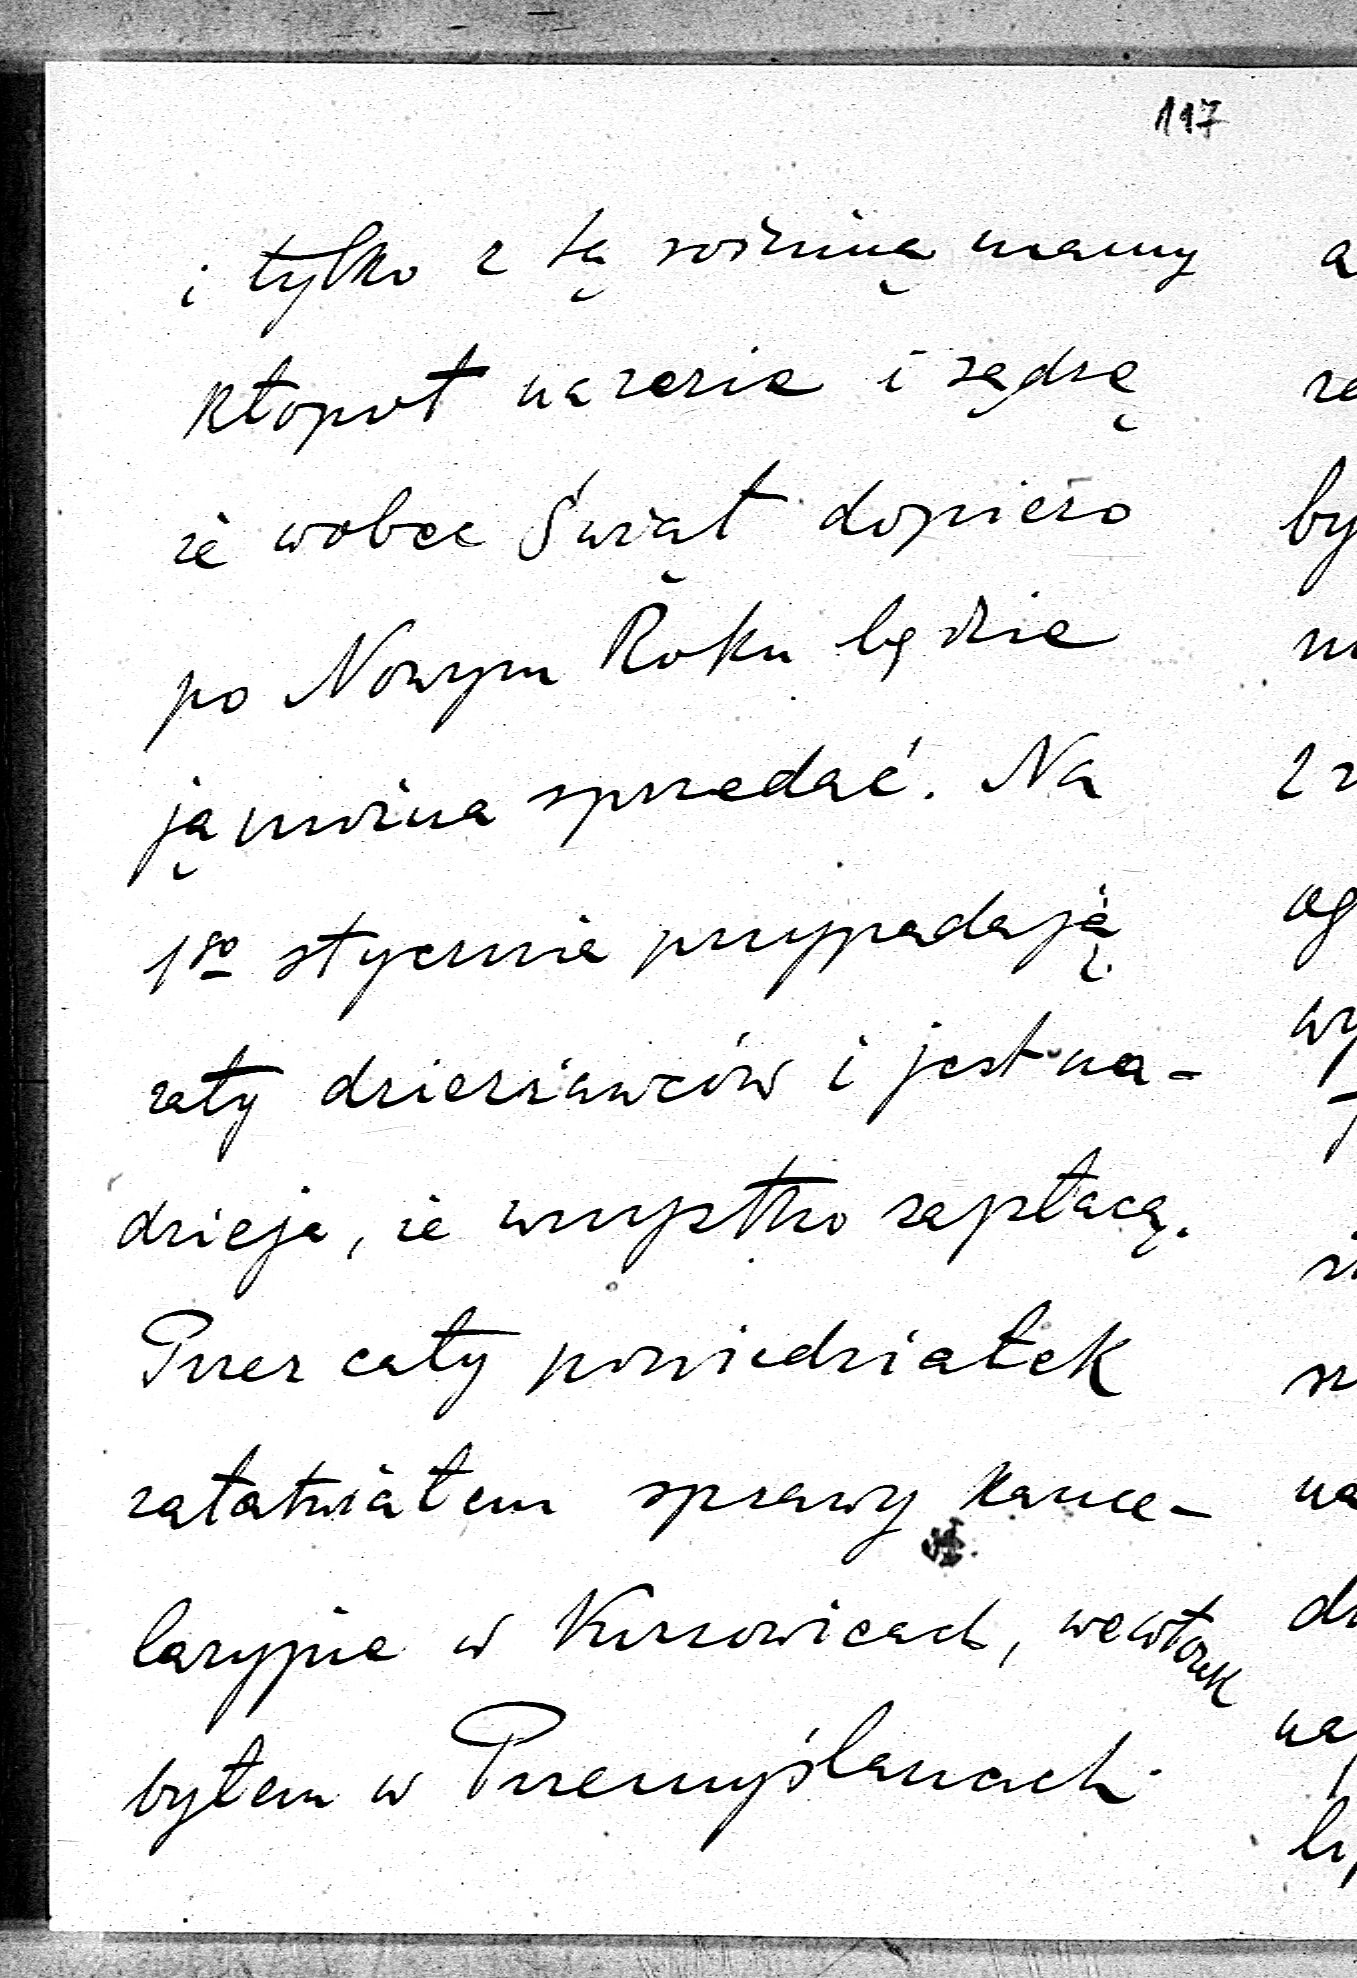 117
i tylko z tą rośliną mamy
kłopot narazie i sądzę
że wobec Świąt dopiero
po Nowym Roku będzie
ją można sprzedać. Na
1go stycznia przypadają
raty dzierżawców i jest na-
dzieja, że wszystko zapłacą.
Przez cały poniedziałek
załatwiałem sprawy kance-
laryjne w Kurowicach, we wtorek
byłem w Przemyślanach.